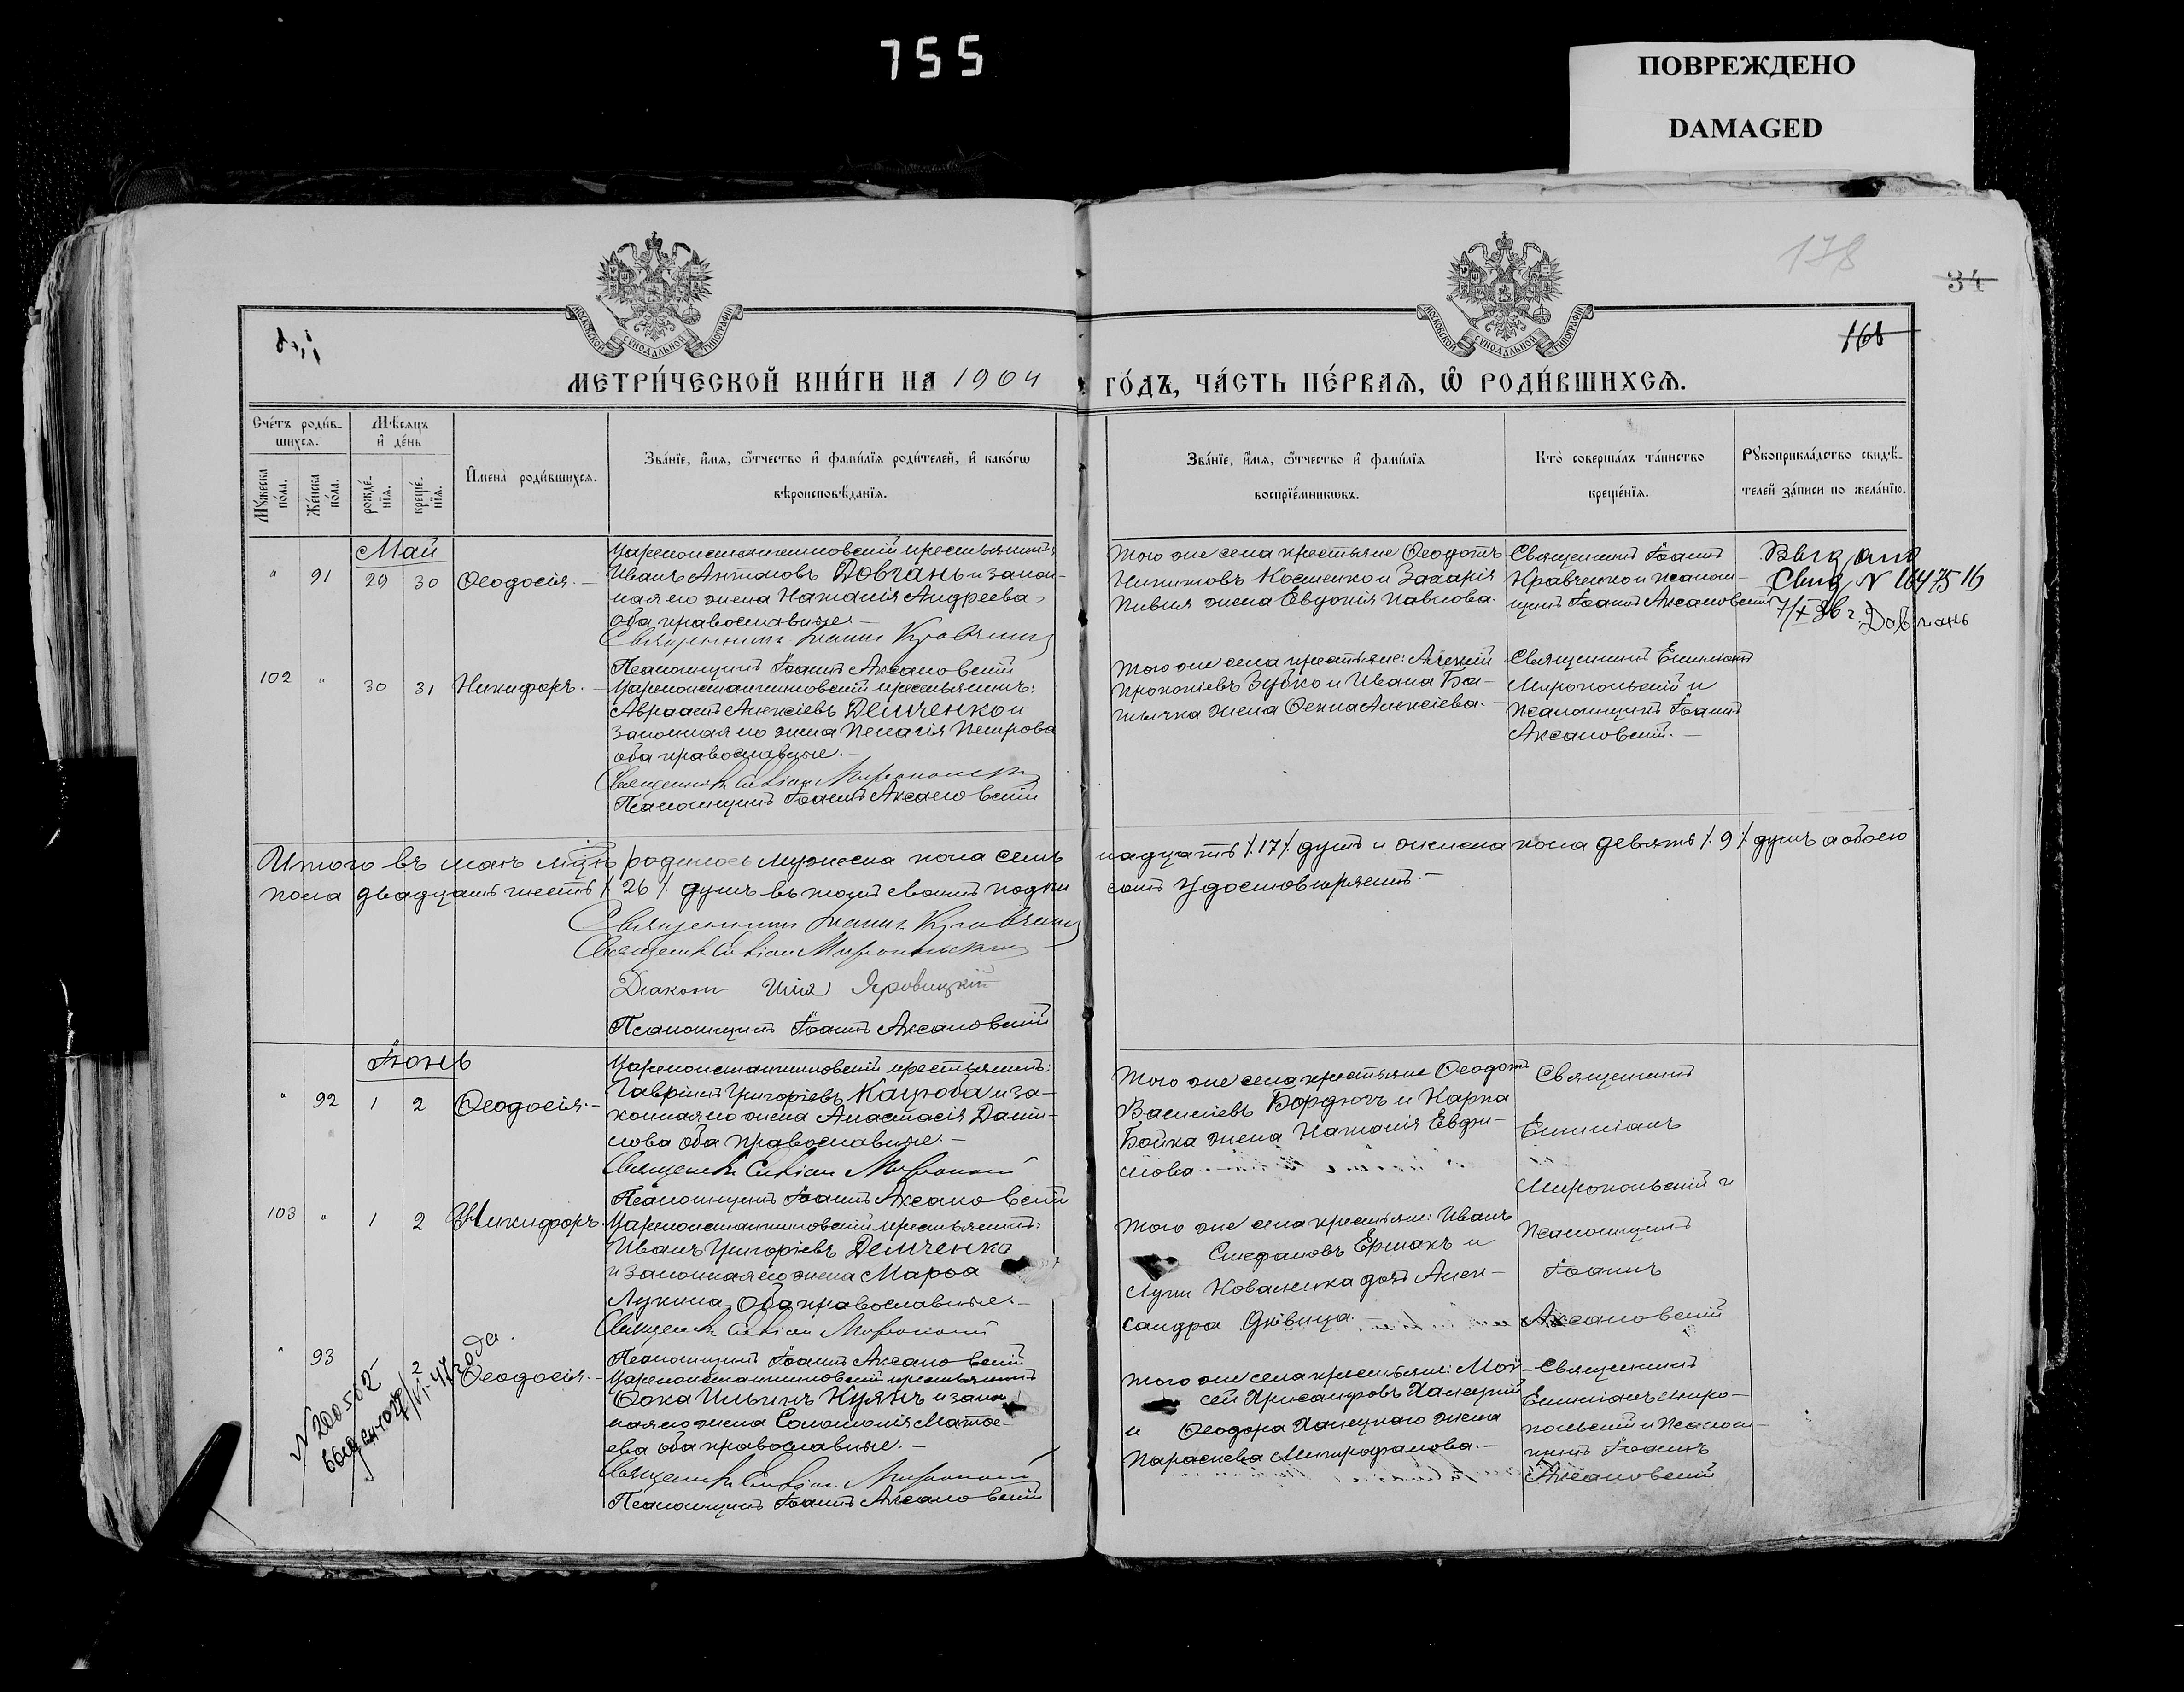 755
ПОВРЕЖДЕНО
DAMAGED
178
34
168
МЕТРИ́ЧЕСКОЙ КНИ́ГИ НА 1904 ГО́ДЪ, ЧА́СТЬ ПЕ́РВАЯ, Ѡ РОДИ́ВШИХСЯ.
Сче́тъ роди́в-
шихся.
Мѣ́сяцъ
и де́нь
Мꙋ́жеска по́ла.
Же́нска по́ла.
рожде́-
нїя.
креще́-
нїя.
Имена̀ роди́вшихся.
Зва́нїе, и́мя, о́тчество и фами́лїя роди́телей, и како́гѡ
вѣроисповѣ́данїя.
Зва́нїе, и́мя, о́тчество и фами́лїя
воспрїе́мникѡвъ.
Кто̀ соверша́лъ та́инство
креще́нїя.
Рꙋкоприкла́дство свидѣ́-
телей за́писи по жела́нїю.
Май
" 91 29 30 Ѳеодосія.
Цареконстантиновскій крестьянинъ
Иванъ Антоновъ Довгань и закон-
ная его жена Наталія Андреева
оба православные
Священникъ Іоаннъ Кравченко
Псаломщикъ Іоаннъ Аксановскій
Того же села крестьяне Ѳеодотъ
Никитовъ Костенко и Захарія
Пивня жена Евдокія Павлова.
Священникъ Іоаннъ
Кравченко и псалом-
щикъ Іоаннъ Аксановскій
Выдано
Свид N
7/X 36 г. Довгань
102 " 30 31 Никифоръ.
Цареконстантиновскій крестьянинъ:
Авраамъ Алексіевъ Демченко и
законная его жена Пелагія Петрова
оба православные.
Священникъ Емиліанъ Миропольскій
Псаломщикъ Іоаннъ Аксановскій
Того же села крестьяне: Алексій
Прокопіевъ Зубко и Ивана Ба-
жена Ѳекла Алексіева.
Священникъ Емиліанъ
Миропольскій и
псаломщикъ Іоаннъ
Аксановскій.
Итого въ маѣ м-цѣ родилось мужеска пола сем-
надцать /.17/. душъ и женска пола девять /.9/. душъ а обоего
пола двадцать шесть /. 26 /. душъ въ томъ своимъ подпи
сомъ удостовѣряемъ.
Священникъ Іоаннъ Кравченко
Священникъ Емиліанъ Миропольскій
Діаконъ Илія Яровицкій
Псаломщикъ Іоаннъ Аксановскій
Іюнь
" 92 1 2 Ѳеодосія.
Цареконстантиновскій крестьянинъ:
Гавріилъ Григоріевъ Кацюба и за-
конная его жена Анастасія Дани-
лова оба православные.
Священникъ Емиліанъ Миропольскій
Псаломщикъ Іоаннъ Аксановскій
Того же села крестьяне Ѳеодотъ
Василіевъ Бордюгъ и Карпа
Бойка жена Наталія Евфи-
мова
Священникъ
Емиліанъ
Миропольскій и
псаломщикъ
Іоаннъ
Аксановскій
103 " 1 2 Никифоръ.
Цареконстантиновскій крестьянинъ:
Иванъ Григоріевъ Демченко
и законная его жена Марѳа
Лукина. Оба православные.
Священникъ Емиліанъ Миропольскій
Псаломщикъ Іоаннъ Аксановскій
Того же села крестьяне: Иванъ
Стефановъ Ермакъ и
Луки Коваленка дочь Алек-
сандра дѣвица.
" 93 Ѳеодосія.
Цареконстантиновскій крестьянинъ
Ѳока Ильинъ Курячъ и закон
ная его жена Соломонія Матѳе-
ева оба православные.
Священникъ Емиліанъ Миропольскій
Псаломщикъ Іоаннъ Аксановскій
Того же села крестьяне: Мои-
сей Хрисанфовъ Халецкій
и Ѳеодора Халецкаго жена
Параскева Митрофанова.
Священникъ
Емиліанъ Миро-
польскій и псалом-
щикъ Іоаннъ
Аксановскій
N 200502
года.